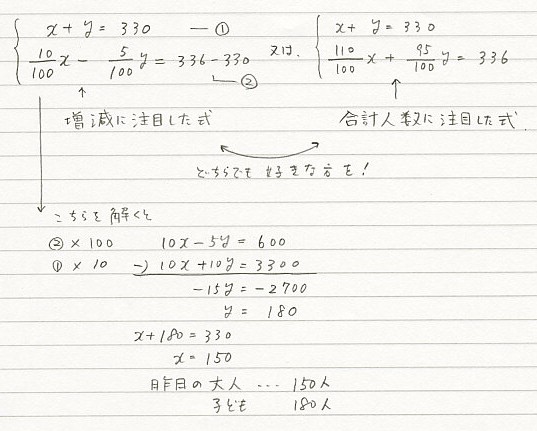 x + y = 330 ―① 又は、 x + y = 330
10/100 x - 5/100 y = 336-330 110/100 x + 95/100 y = 336
②
↑ ↑
増減に注目した式 合計人数に注目した式
どちらでも好きな方を!
こちらを解くと
② × 100 10x-5y = 600
① × 10 -) 10x+10y = 3300
-15y = -2700
y = 180
x+180 = 330
x = 150
昨日の大人 … 150人
子ども 180人